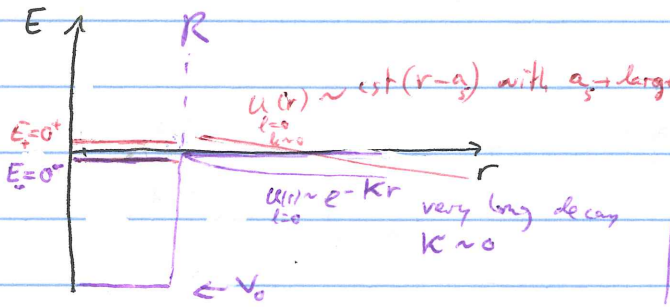 E
R
u(r) ~ cst(r-a_s) with a_s → large
l=0
k~0
E_+=0⁺
r
E_-=0⁻
u(r) ~ e^{-Kr} very long decay
l=0
K ~ 0
← V₀